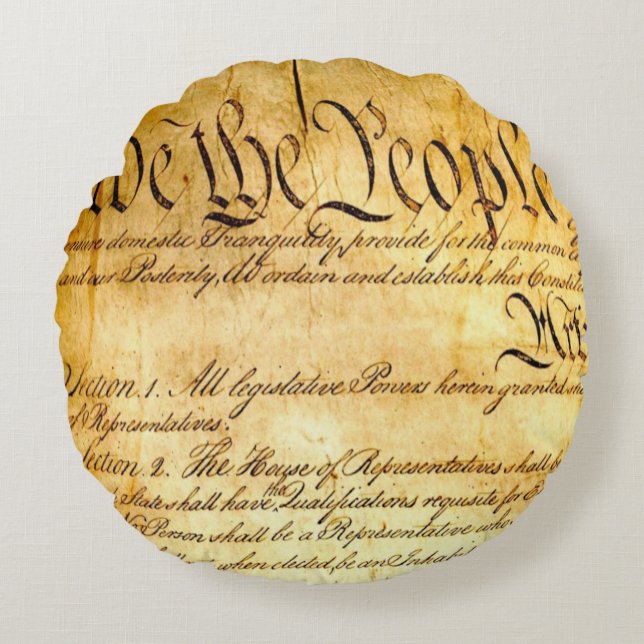 We the People
ensure domestic Tranquility, provide for the common
and our Posterity, do ordain and establish this Constit
Section. 1. All legislative Powers herein granted sha
of Representatives.
Section. 2. The House of Representatives shall be
State shall have the Qualifications requisite for E
No Person shall be a Representative who
when elected, be an Inhabi